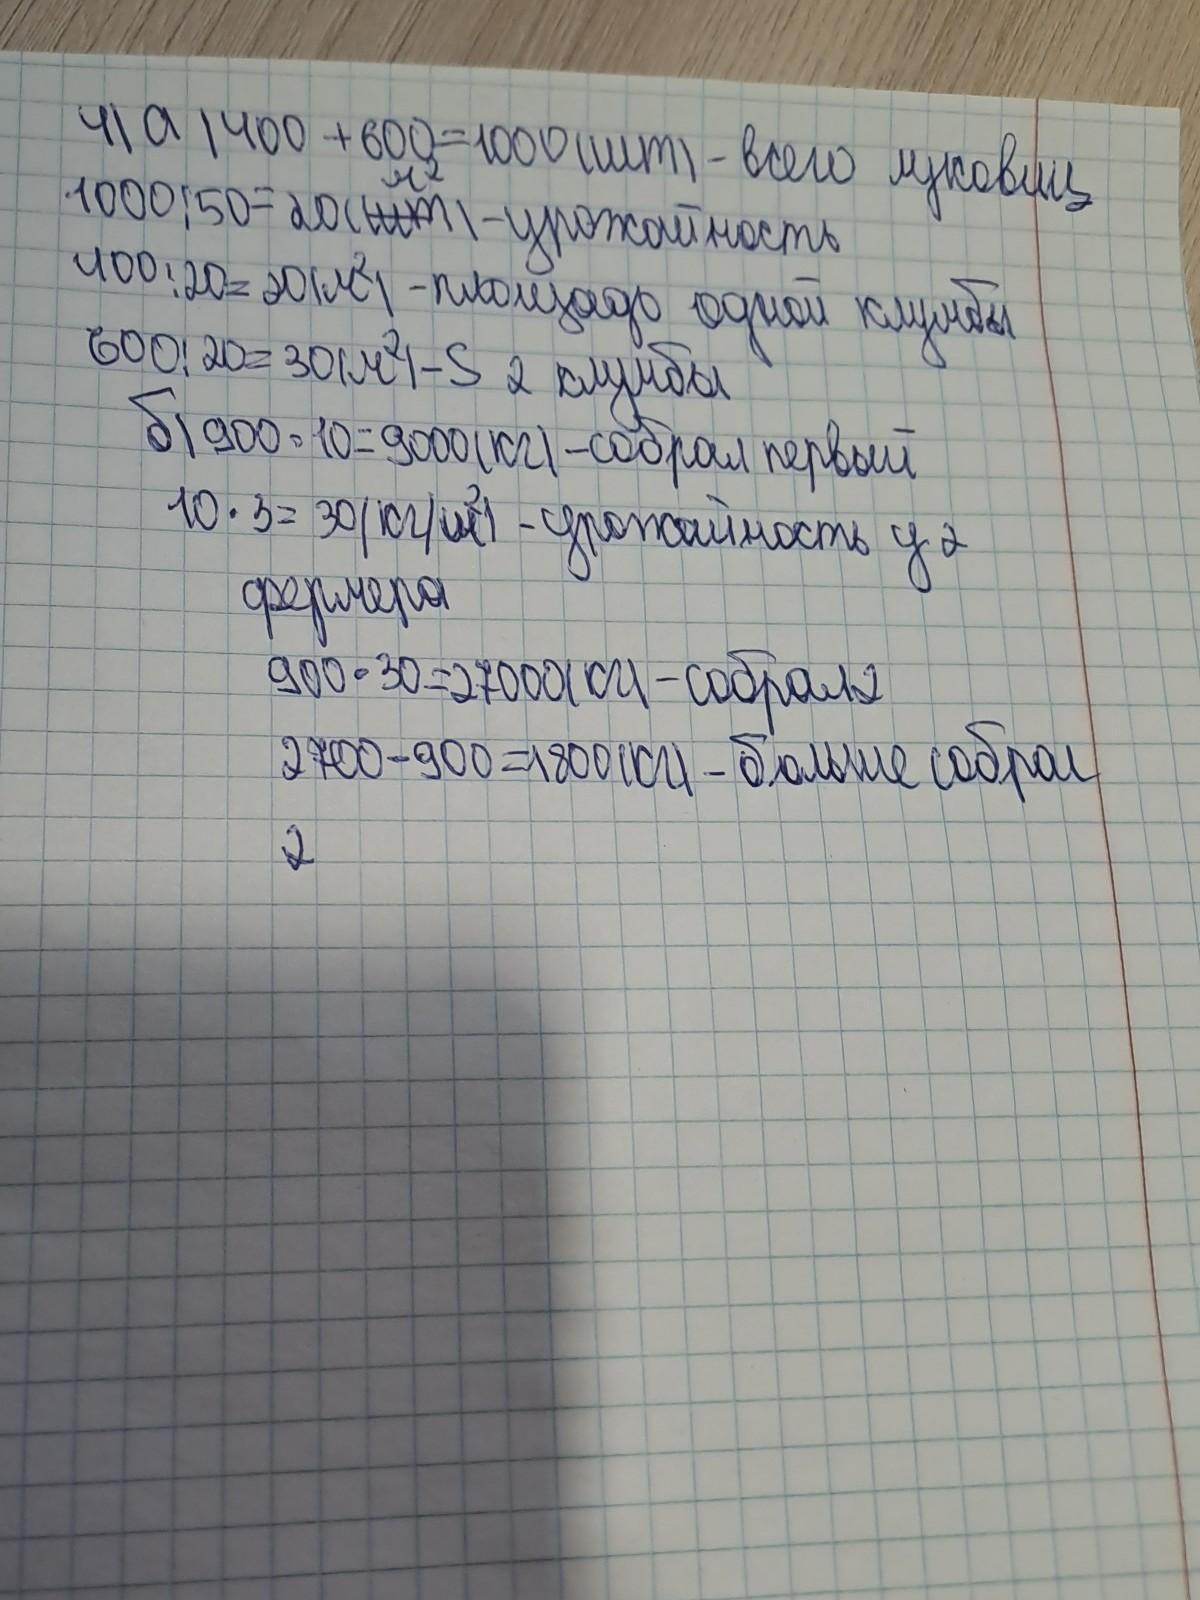 4) а) 400 + 600 = 1000 (шт) - всего луковиц
1000 : 50 = 20 (м²) - урожайность
400 : 20 = 20 (м²) - площадь одной клумбы
600 : 20 = 30 (м²) - S 2 клумбы
б) 900 · 10 = 9000 (кг) - собрал первый
10 · 3 = 30 (кг/м²) - урожайность у 2
фермера
900 · 30 = 27000 (кг) - собрал 2
2700 - 900 = 1800 (кг) - больше собрал
2